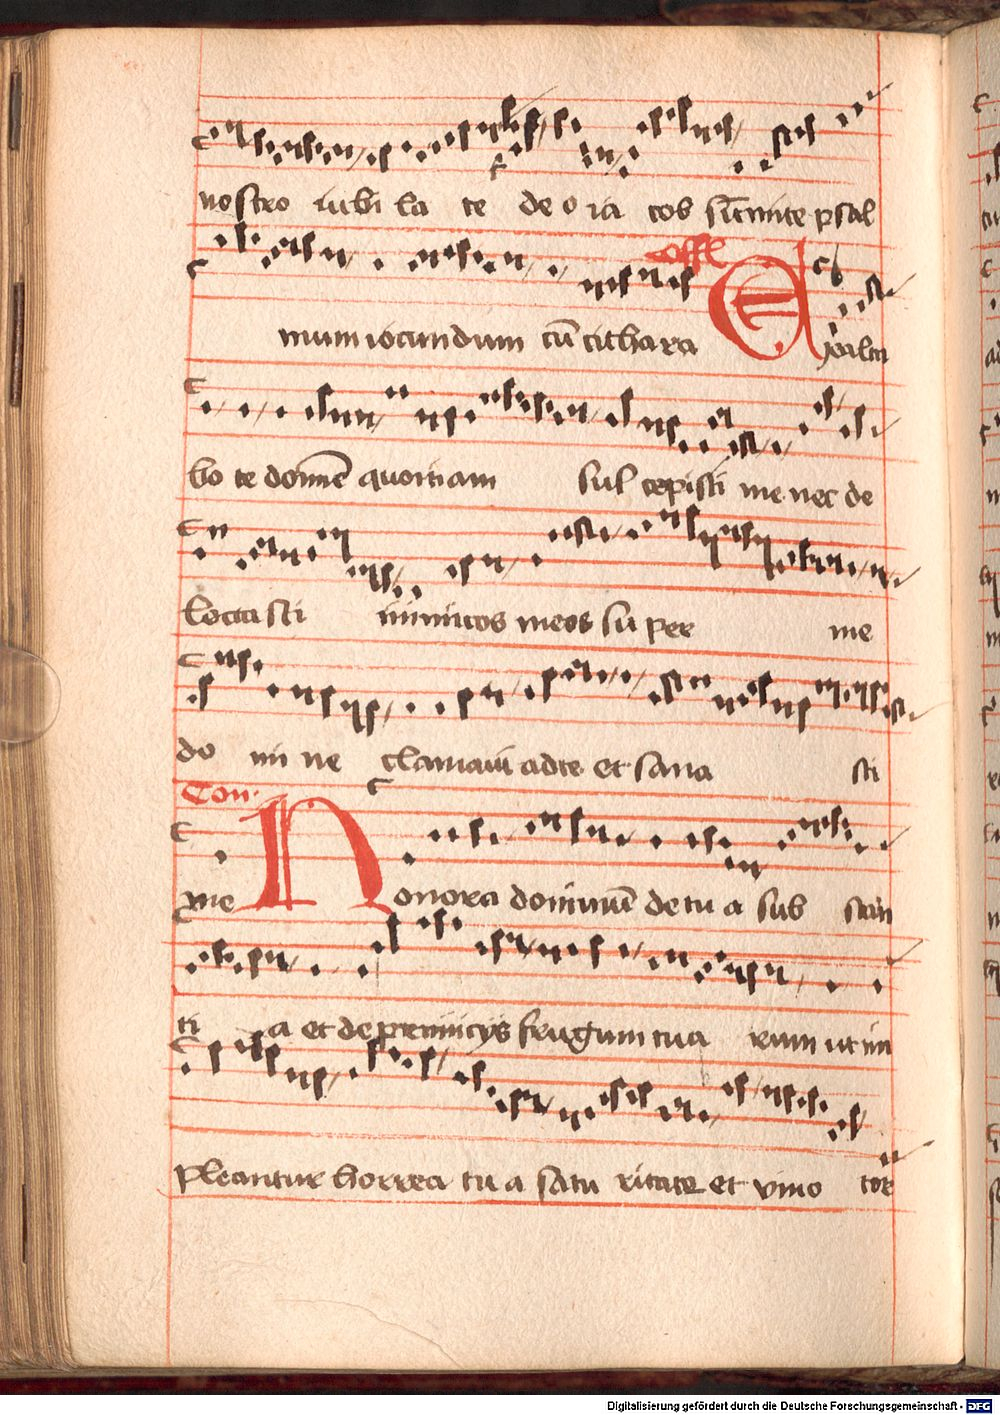 nostro iubi la te de o ia cob su̅mite psal
offe
mum iocundum cu̅ cithara Exalta
bo te domine̅ quoniam sus cepisti me nec de
lectasti inimicos meos su per me
do mi ne clamaui ad te et sana sti
Con.
me Honora dominu̅ de tu a sub stan
ti a et de primicijs frugum tua rum ut im
pleantur horrea tu a satu ritate et vino tor
Digitalisierung gefördert durch die Deutsche Forschungsgemeinschaft - DFG